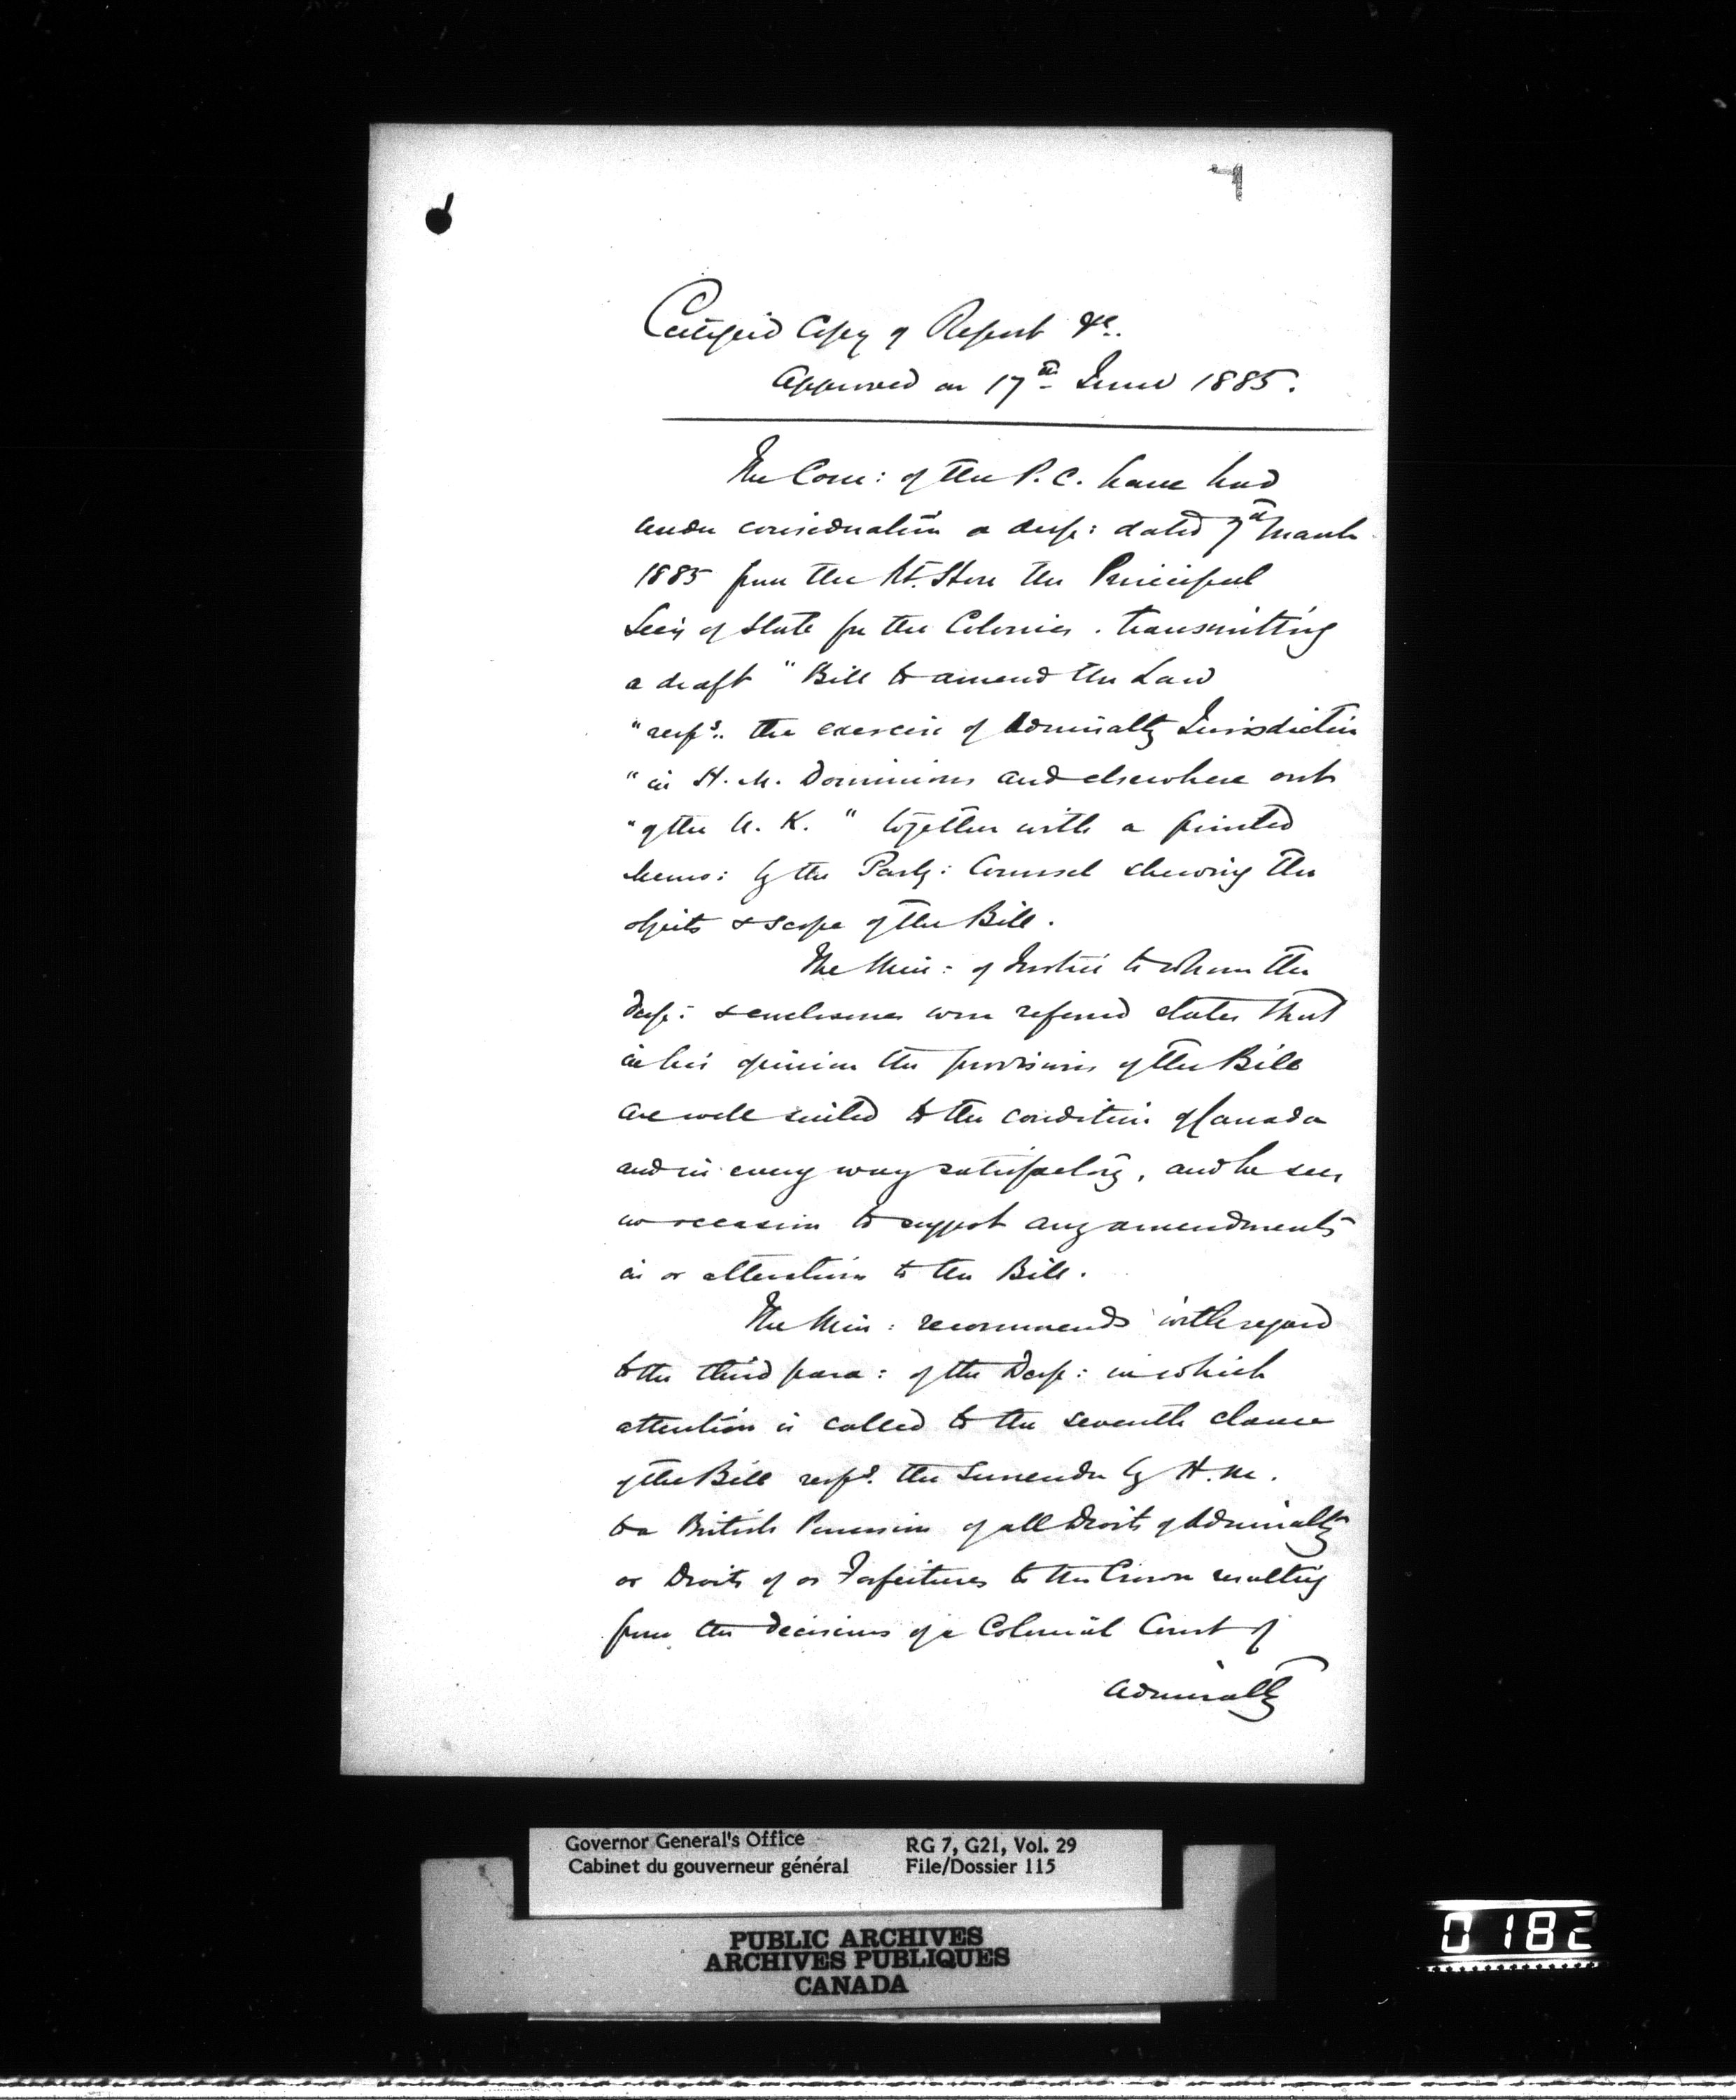 Certified Copy of Report &c.
Approved on 17th June 1885.
The Com: of the P.C. have had
under consideration a desp: dated 7th March
1885 from the Rt. Hon the Principal
Secy of State for the Colonies. transmitting
a draft "Bill to amend the Law
"respg. the exercise of Admiralty Jurisdiction
"in H.M. Dominions and elsewhere out
"of the U.K." together with a printed
memo: by the Parly: Counsel shewing the
objects & scope of the Bill.
The Min: of Justice to whom the
Desp: & enclosures were referred states that
in his opinion the provisions of the Bill
are well suited to the condition of Canada
and in every way satisfactory, and he sees
no occasion to suggest any amendments
in or alteration to the Bill.
The Min: recommends with regard
to the third para: of the Desp: in which
attention is called to the seventh clause
of the Bill respg. the Surrender by H.M.
to a British Possession of all Droits of Admiralty
or Droits of or Forfeitures to the Crown resulting
from the decisions of a Colonial Court of
Admiralty
Governor General's Office
Cabinet du gouverneur général
RG 7, G21, Vol. 29
File/Dossier 115
PUBLIC ARCHIVES
ARCHIVES PUBLIQUES
CANADA
0182